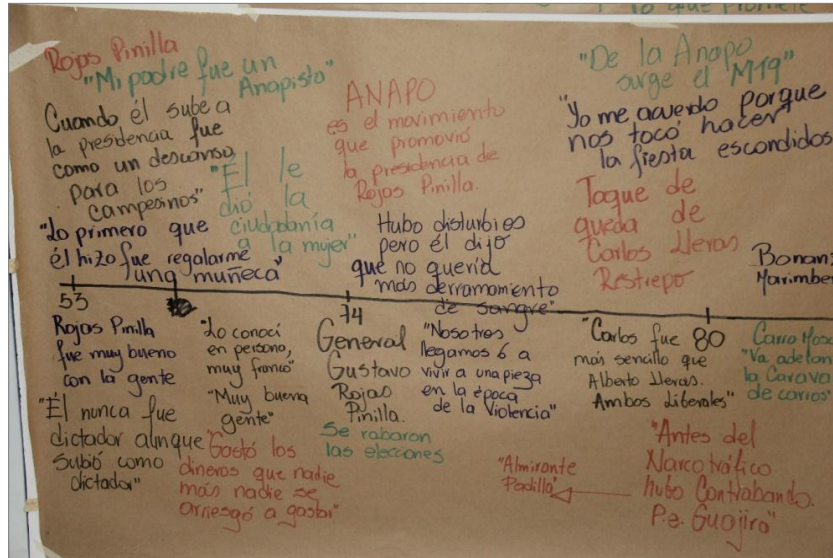 Rojas Pinilla
"Mi padre fue un
Anapista"
Cuando él sube a
la presidencia fue
como un descanso
para los
campesinos"
"Él le
dió la
ciudadanía
a la mujer"
"Lo primero que
él hizo fue regalarme
una muñeca"
ANAPO
es el movimiento
que promovió
la presidencia de
Rojas Pinilla.
Hubo disturbios
pero él dijo
que no quería
más derramamiento
de sangre"
"De la Anapo
surge el M19"
"Yo me acuerdo porque
nos tocó hacer
la fiesta escondidos
Toque de
queda de
Carlos Lleras
Restrepo
53
74
80
Rojas Pinilla
fue muy bueno
con la gente
"Él nunca fue
dictador aunque
subió como
dictador"
"Lo conocí
en persona,
muy franco"
"Muy buena
gente"
"Gastó los
dineros que nadie
más nadie se
arriesgó a gastar"
General
Gustavo
Rojas
Pinilla.
Se rabaron
las elecciones
"Nosotros
llegamos 6 a
vivir a una pieza
en la época
de la Violencia"
"Carlos fue
más sencillo que
Alberto Lleras.
Ambos Liberales"
la Carava
de carros"
"Almirante
Padilla"
"Antes del
Narcotráfico
hubo Contrabando.
P.e. Guajira"